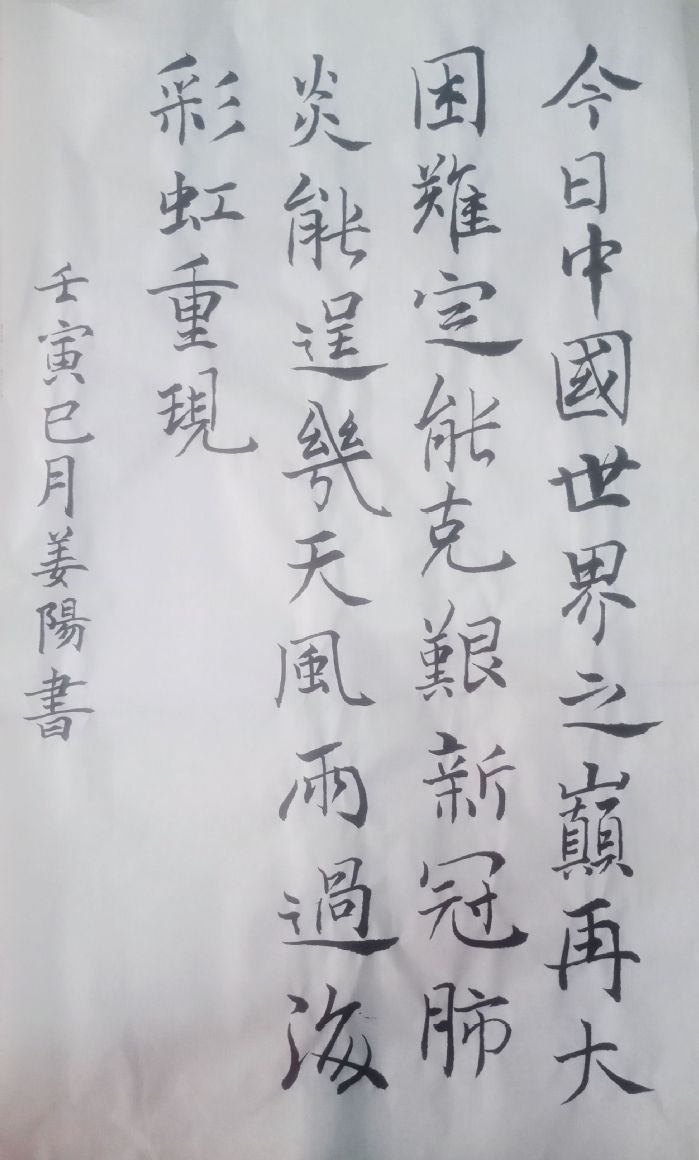 今日中國世界之巔再大
困難定能克艱新冠肺
炎能逞幾天風雨過後
彩虹重現
壬寅巳月姜陽書